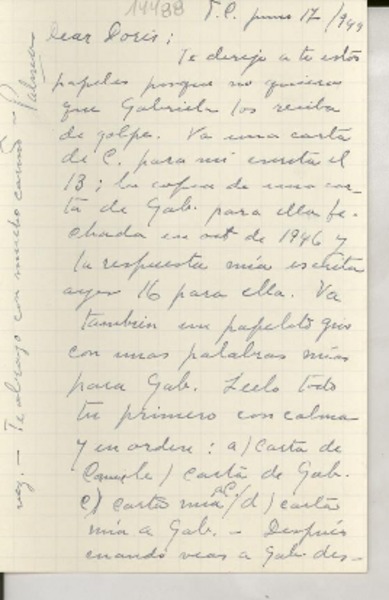 14488
D.C. junio 17/949
Dear Doris:
Te dirijo a te estos
papeles porque no quisiera
que Gabriela los reciba
de golpe. Va una carta
de C. para mí escrita el
13; la copia de una car-
ta de Gab. para ella fe-
chada en oct de 1946 y
la respuesta mía escrita
ayer 16 para ella. Va
también un papelito gris
con unas palabras mías
para Gab. Leelo todo
tu primero con calma
y en orden: a) Carta de
Consuelo b) carta de Gab.
c) carta mía a C./ d) carta
mía a Gab. — Después
cuando veas a Gab. des-
vez. — Te abrazo con mucho cariño — Palma